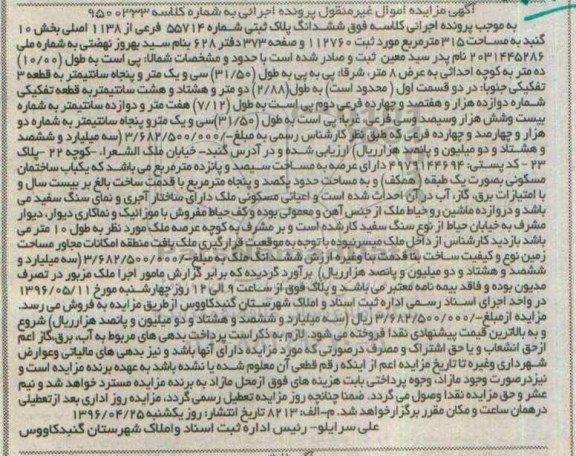 آگهی مزایده اموال غیرمنقول پرونده اجرائی به شماره کلاسه ۹۵۰۰۳۳۳
به موجب پرونده اجرائی کلاسه فوق ششدانگ پلاک ثبتی شماره ۵۵۷۱۴ فرعی از ۱۱۳۸ اصلی بخش ۱۰
گنبد به مساحت ۳۱۵ مترمربع مورد ثبت ۱۱۲۷۶۰ و صفحه ۳۷۳ دفتر ۶۲۸ بنام سید بهروز نهضتی به شماره ملی
۲۰۳۱۴۴۵۲۸۶ نام پدر سید معین ثبت و صادر شده است با حدود و مشخصات شمالا: پی است به طول (۱۰/۰۰)
ده متر به کوچه احداثی به عرض ۸ متر، شرقا: پی به پی به طول (۳۱/۵۰) سی و یک متر و پنجاه سانتیمتر به قطعه ۳
تفکیکی جنوبا: در دو قسمت اول (محدود است) به طول (۲/۸۸) دو متر و هشتاد و هشت سانتیمتر به قطعه تفکیکی
شماره دوازده هزار و هفتصد و چهارده فرعی دوم پی است به طول (۷/۱۲) هفت متر و دوازده سانتیمتر به شماره
بیست وشش هزار وسیصد وسی فرعی، غربا: پی است به طول (۳۱/۵۰) سی و یک متر و پنجاه سانتیمتر به شماره دو
هزار و چهارصد و چهارده فرعی که طبق نظر کارشناس رسمی به مبلغ ۳/۶۸۲/۵۰۰/۰۰۰/- (سه میلیارد و ششصد
و هشتاد و دو میلیون و پانصد هزارریال) ارزیابی شده و در آدرس گنبد- خیابان ملک الشعرا، -کوچه ۲۲ -پلاک
۲۳ - کد پستی: ۴۹۷۹۱۴۴۶۹۴ دارای عرصه به مساحت سیصد و پانزده مترمربع می باشد که یکباب ساختمان
مسکونی بصورت یک طبقه (همکف) و به مساحت حدود یکصد و پنجاه مترمربع با قدمت ساخت بالغ بر بیست سال و
با امتیازات برق، گاز، آب در آن احداث شده است و اعیانی مسکونی ملک دارای ساختار آجری و نمای سنگ سفید می
باشد و دروازه ماشین رو حیاط ملک از جنس آهن و معمولی بوده و کف حیاط مفروش با موزائیک و نماکاری دیوار، دیوار
مشرف به خیابان حیاط از نوع سنگ سفید کارشده است و بر مشرف به کوچه عرصه ملک مورد نظر به طول ۱۰ متر می
باشد بازدید کارشناس از داخل ملک میسرنبوده با توجه به موقعیت قرارگیری ملک بافت منطقه امکانات مجاور مساحت
زمین نوع و کیفیت ساخت بنا قدمت بنا وغیره ارزش ششدانگ ملک به مبلغ ۳/۶۸۲/۵۰۰/۰۰۰/- (سه میلیارد و
ششصد و هشتاد و دو میلیون و پانصد هزارریال) برآورد گردیده که برابر گزارش مامور اجرا ملک مزبور در تصرف
مدیون بوده و فاقد بیمه نامه معتبر می باشد و پلاک فوق از ساعت ۹ الی ۱۲ روز چهارشنبه مورخ ۱۳۹۶/۰۵/۱۱
در واحد اجرای اسناد رسمی اداره ثبت اسناد و املاک شهرستان گنبدکاووس ازطریق مزایده به فروش می رسد.
مزایده ازمبلغ ۳/۶۸۲/۵۰۰/۰۰۰/- ریال (سه میلیارد و ششصد و هشتاد و دو میلیون و پانصد هزارریال) شروع
و به بالاترین قیمت پیشنهادی نقدا فروخته می شود. لازم به ذکر است پرداخت بدهی های مربوط به آب، برق، گاز اعم
ازحق انشعاب و یا حق اشتراک و مصرف درصورتی که مورد مزایده دارای آنها باشد و نیز بدهی های مالیاتی وعوارض
شهرداری وغیره تا تاریخ مزایده اعم از اینکه رقم قطعی آن معلوم شده یا نشده باشد به عهده برنده مزایده است و
نیزدرصورت وجود مازاد، وجوه پرداختی بابت هزینه های فوق ازمحل مازاد به برنده مزایده مسترد خواهد شد و نیم
عشر و حق مزایده نقدا وصول می گردد. ضمنا چنانچه روز مزایده تعطیل رسمی گردد، مزایده روز اداری بعد ازتعطیلی
درهمان ساعت و مکان مقرر برگزارخواهد شد. م-الف: ۸۲۱۳ تاریخ انتشار: روز یکشنبه ۱۳۹۶/۰۴/۲۵
علی سرایلو- رئیس اداره ثبت اسناد واملاک شهرستان گنبدکاووس